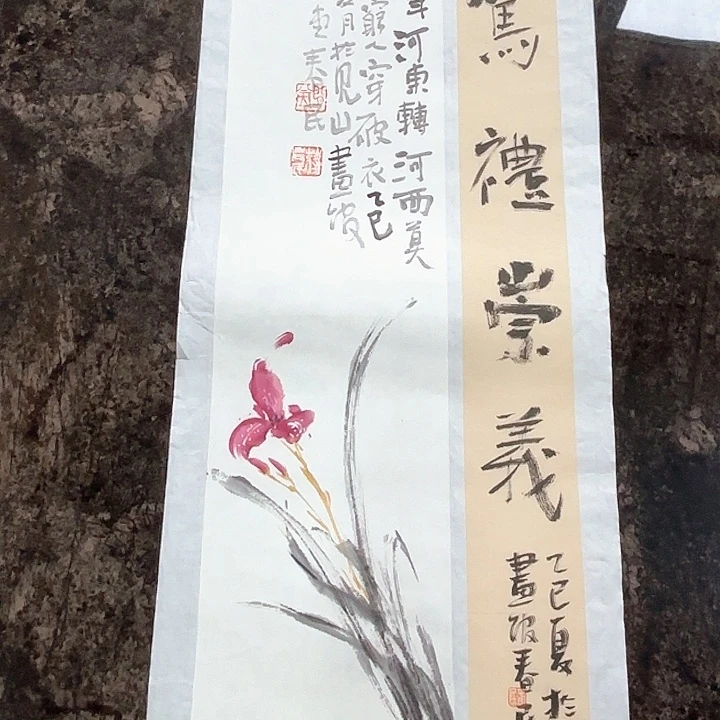 篤禮崇義
乙巳夏於
畫溆春民
年河東轉河西莫
窮人穿破衣乙巳
月於見山畫溆
春民